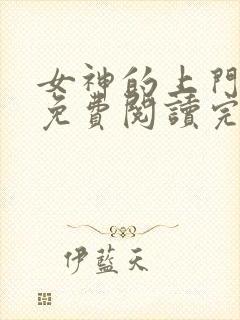 女神的上門
免費閱讀完
伊藍天